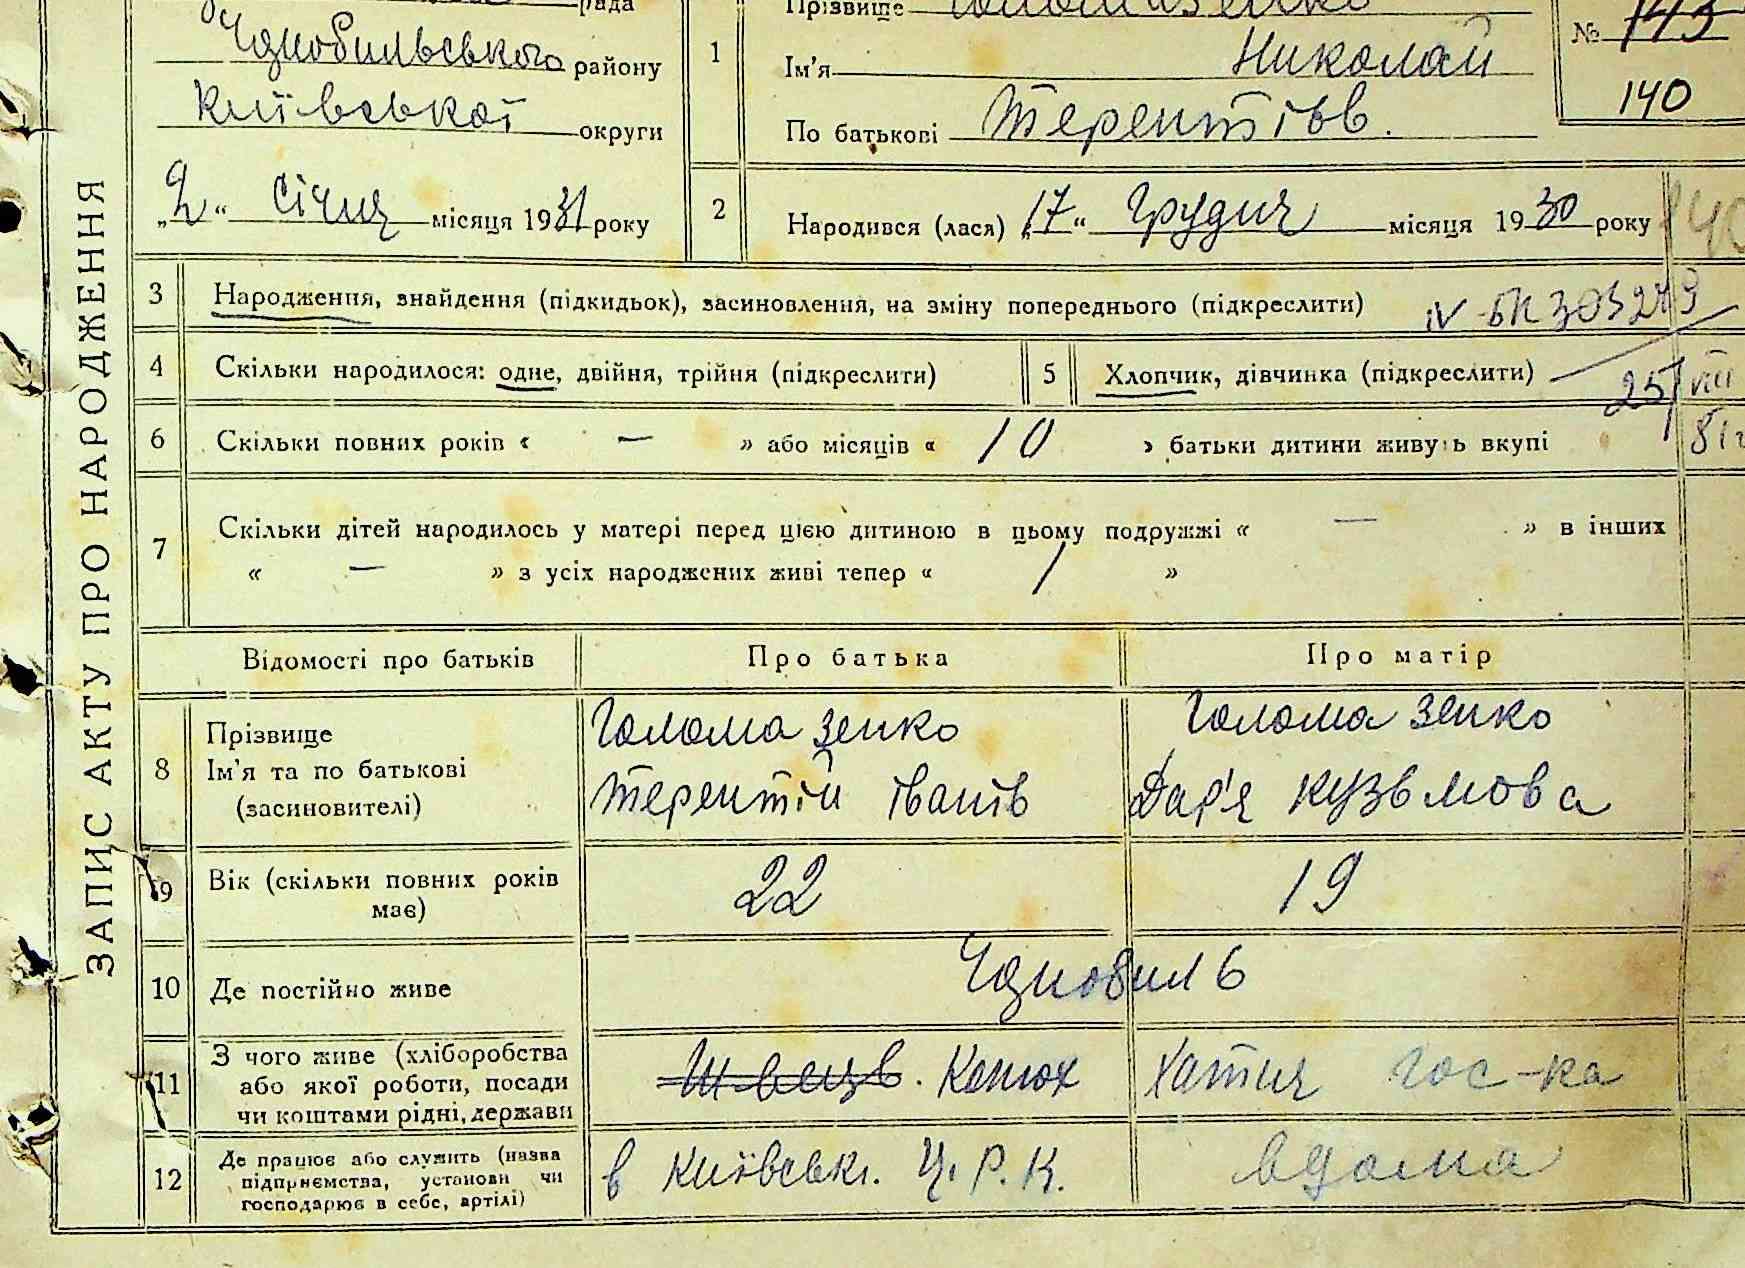 рада
Чорнобильського району
Київської округи
„2“ Січня місяця 1931 року
ЗАПИС АКТУ ПРО НАРОДЖЕННЯ
1
Прізвище Голомазенко
Ім'я Николай
По батькові Терентіїв.
№ 143
140
2
Народився (лася) „17“ Грудня місяця 1930 року
3 Народження, знайдення (підкидьок), засиновлення, на зміну попереднього (підкреслити)
IV-БК 303279
4 Скільки народилося: одне, двійня, трійня (підкреслити)
5 Хлопчик, дівчинка (підкреслити)
25/VIII
6 Скільки повних років « — » або місяців « 10 » батьки дитини живуть вкупі
81
7 Скільки дітей народилось у матері перед цією дитиною в цьому подружжі « — » в інших
« — » з усіх народжених живі тепер « 1 »
Відомості про батьків Про батька Про матір
8 Прізвище
Ім'я та по батькові
(засиновителі)
Голома зенко
Терентій Іванів
Голома зенко
Дар'я Кузьмова
9 Вік (скільки повних років
має)
22 19
10 Де постійно живе Чорнобиль
11 З чого живе (хліборобства
або якої роботи, посади
чи коштами рідні, держави
Швець. Конюх Хатня гос-ка
12 Де працює або служить (назва
підприємства, установи чи
господарює в себе, артілі)
в Київськ. Ц.Р.К. вдома